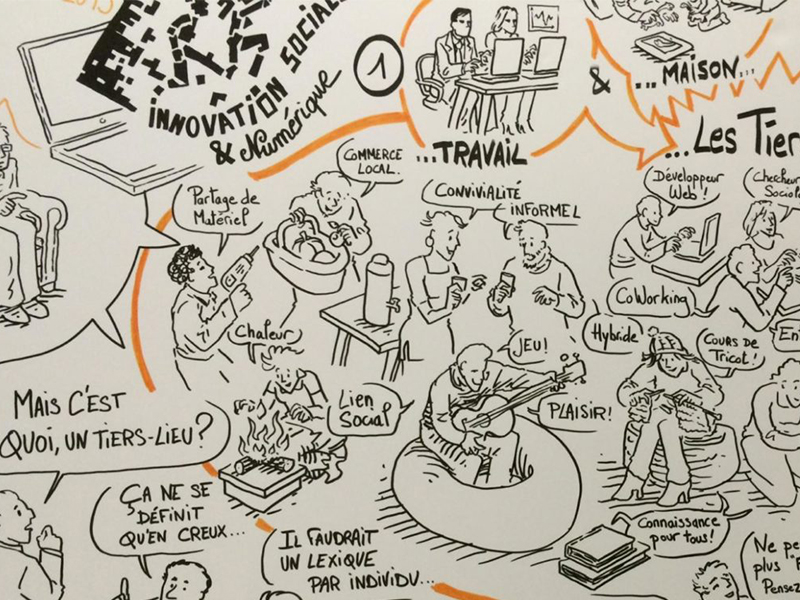 2015
INNOVATION SOCIALE
& Numérique
1
...TRAVAIL
& ...MAISON...
...Les Tier
COMMERCE
LOCAL.
Partage de
Matériel
CONVIVIALITÉ
INFORMEL
Développeur
Web!
Chercheur
Sociolo
CoWorking
Hybride
COURS DE
Tricot!
Chaleur
JEU!
Lien
Social
PLAISIR!
MAIS C'EST
QUOI, UN TIERS-LIEU?
ÇA NE SE
DÉFINIT
QU'EN CREUX...
IL FAUDRAIT
UN LEXIQUE
PAR INDIVIDU...
Connaissance
pour tous!
Ne pe
plus
Pensez